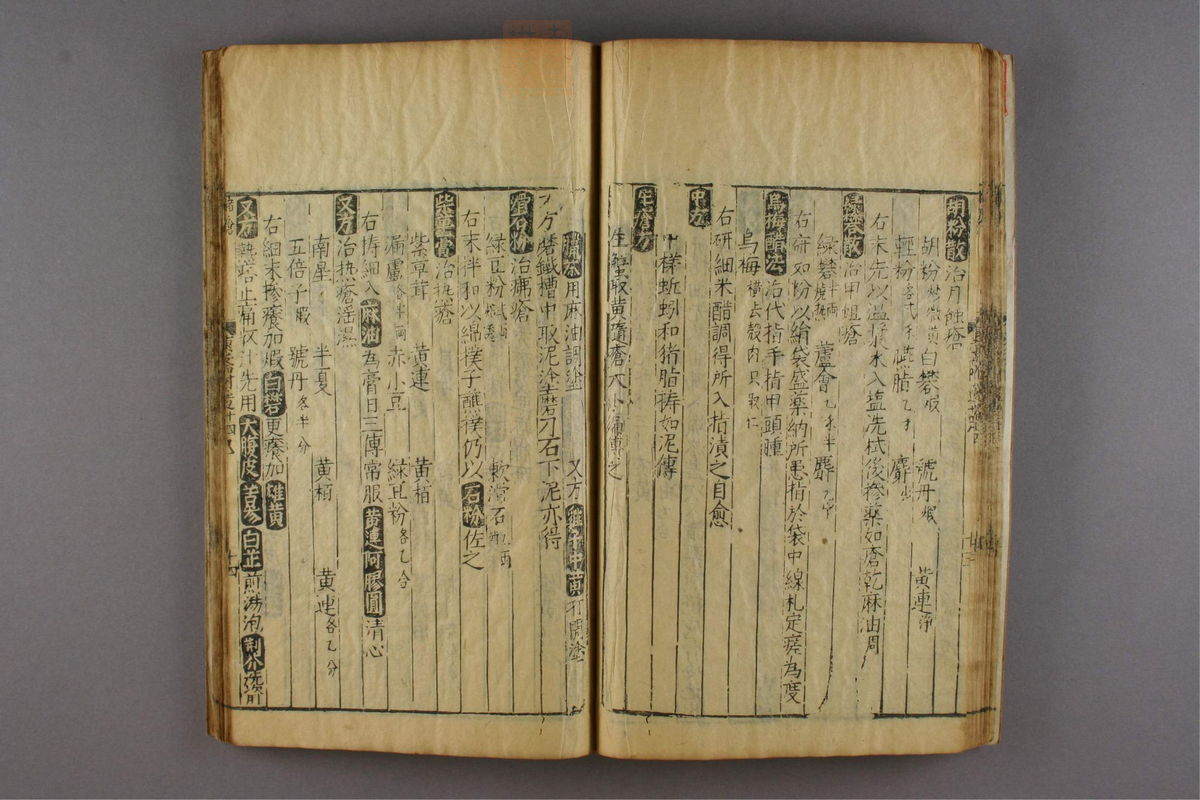 胡粉散治月蝕瘡
胡粉 微黄 白礬 煅 號丹 煅 黄連 净
輕粉 各弍乆 臙脂 乙乆 麝 少
右末先以温漿水入塩洗拭後摻藥如瘡乾麻油周
緑礬散治甲疽瘡
緑礬 半兩 蘆會 乙乆半 麝 乙字
右研如粉以絹袋盛藥納所患指於袋中線札定瘥為度
烏梅醋法治代指手指甲頭腫
烏梅 槌去殻肉只取仁
右研細米醋調得所入指漬之自愈
又方
蚯蚓和猪脂祷如泥傅
漆瘡方
生蟹取黄隨瘡大小傅之
用麻油調塗 又方雞子中黄打開塗
又方磨鐵槽中取泥塗磨刀石下泥亦得
滑石粉治痱瘡
緑豆粉 軟滑石 兩
右末拌和以綿撲子蘸撲仍以石粉佐之
柴草膏治热瘡
紫草茸 黄連 黄栢
漏盧 各半兩 赤小豆 緑豆粉 各乙合
右捣細入麻油為膏日三傅常服黄連阿膠圓清心
又方治热瘡滛濕
南星 半夏 黄栢
五倍子 煅 號丹 各半分 黄連 各乙分
右細末摻癢加煅白礬更癢加雄黄
又方熱瘡止痛收汁先用大腹皮苦參白芷煎湯泡荆芥